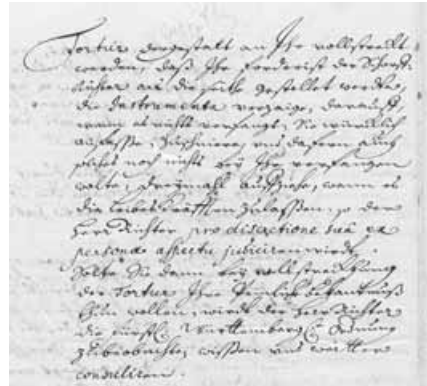 Tortur dergestalt an Ihr vollstreckt
werden, daß Ihr forderist der Scharff-
richter an die seithe gestellet werde,
die Instrumenta vorzaige, darauff,
wann es nichts verfangt, Sie würcklich
anfasse, und, dafern auch
solches noch nichts bey Ihr verfangen
wolte, dreymahl auffziehe, wann es
die Leibes Kräfften zulassen, so der
Herr Richter pro discretione suâ ex
personae aspectu judiciren wirdt.
Solte Sie dann bey vollstreckhung
der Tortur Ihre Peinlich bekantnuß
thun wollen, wirdt der Herr Richter
die fürstl. Württemberg. Ordnung
zu beobachten wissen und weitter
consuliren.